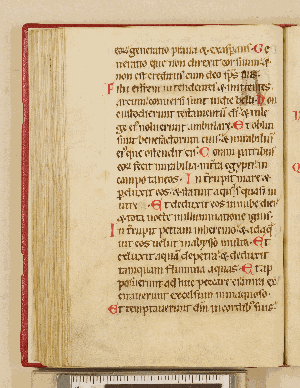 eos generatio praua & exasperans. Ge
neratio que non direxit cor suum &
non est creditus cum deo sps eius
Filii effrem intendentes & mittentes
arcum conuersi sunt in die belli. Non
custodierunt testamentum di & in le
ge ei noluerunt ambulare. Et obliti
sunt benefactorum eius & mirabiliū
ei que ostendit eis. Coram patribus
eos fecit mirabilia in terra egypti in
campo taneos. Interrupit mare &
perduxit eos & statuit aquas quasi in
utre. Et deduxit eos in nube diei
& tota nocte in illuminatione ignis.
Interrupit petram in heremo & adaq
uit eos uelut in abysso multa. Et
eduxit aquā de petra & deduxit
tamquam flumina aquas. Et ap
posuerunt adhuc peccare ei in ira ex
citauerunt excelsum in inaquoso.
Et temptauerunt dm in cordib; suis